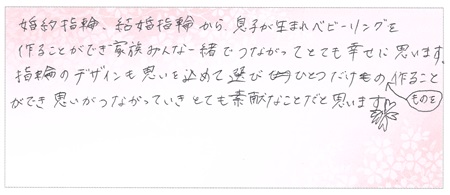 婚約指輪、結婚指輪から、息子が生まれベビーリングを
作ることができ家族みんな一緒でつながってとても幸せに思います。
指輪のデザインも思いを込めて選びひとつだけものを作ること
ができ思いがつながっていきとても素敵なことだと思います